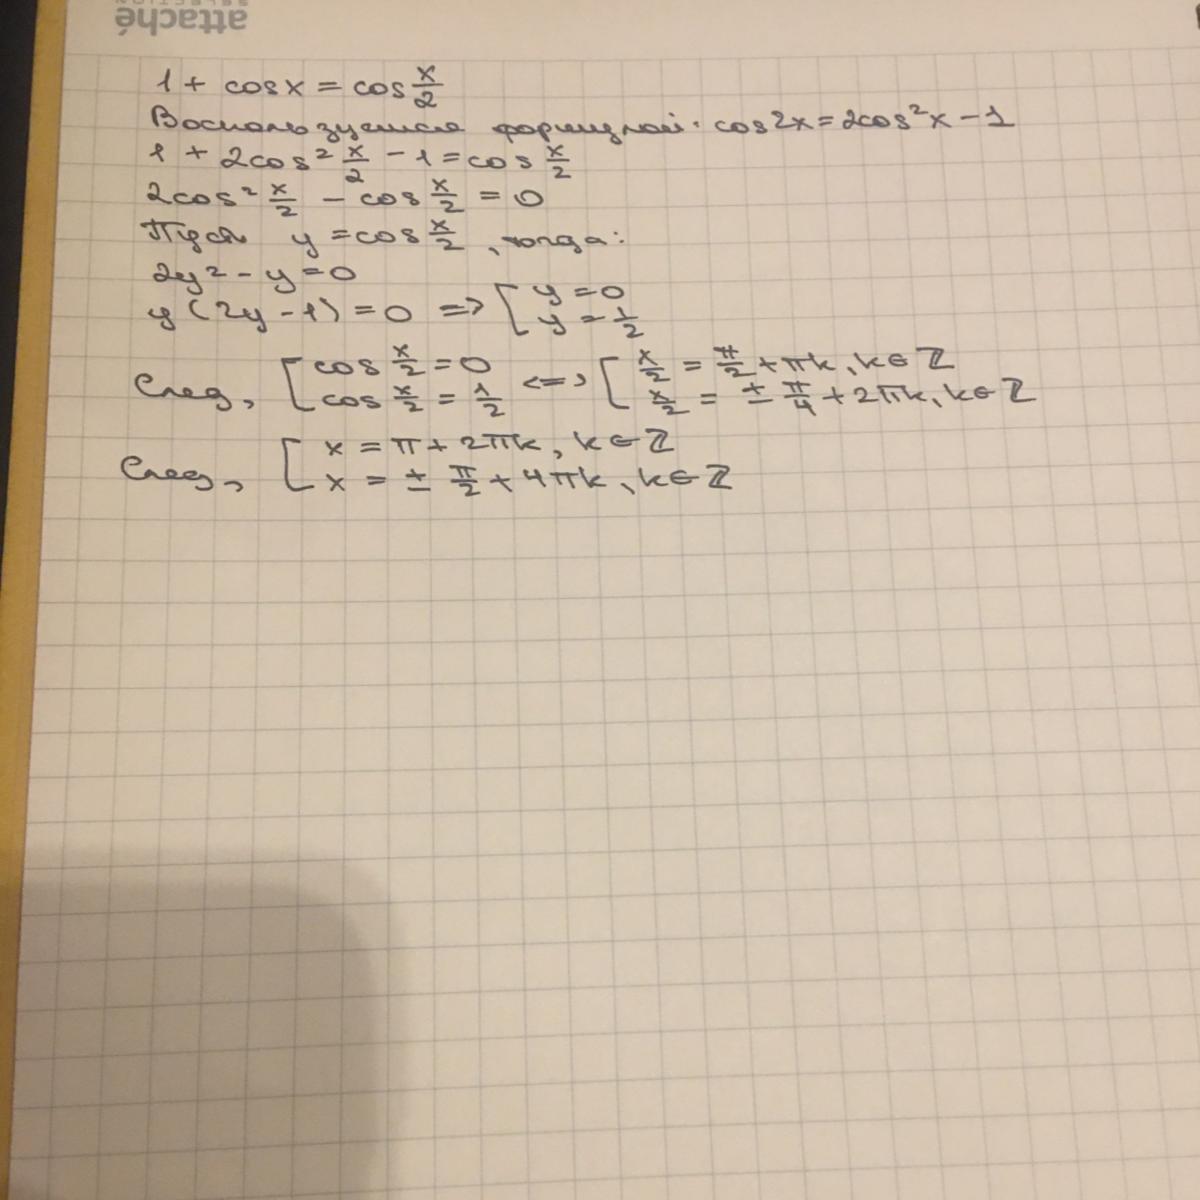 attaché
SELECTION
1 + cosx = cos x/2
Воспользуемся формулой: cos2x = 2cos²x − 1
1 + 2cos² x/2 − 1 = cos x/2
2cos² x/2 − cos x/2 = 0
Пусть y = cos x/2, тогда:
2y² − y = 0
y(2y − 1) = 0 => [ y = 0
y = 1/2
След, [ cos x/2 = 0 <=> [ x/2 = π/2 + πk, k∈ℤ
cos x/2 = 1/2 x/2 = ± π/4 + 2πk, k∈ℤ
След, [ x = π + 2πk, k∈ℤ
x = ± π/2 + 4πk, k∈ℤ